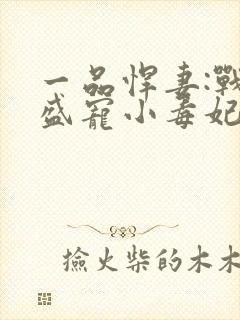 一品悍妻:戰
盛寵小毒妃
撿火柴的木木